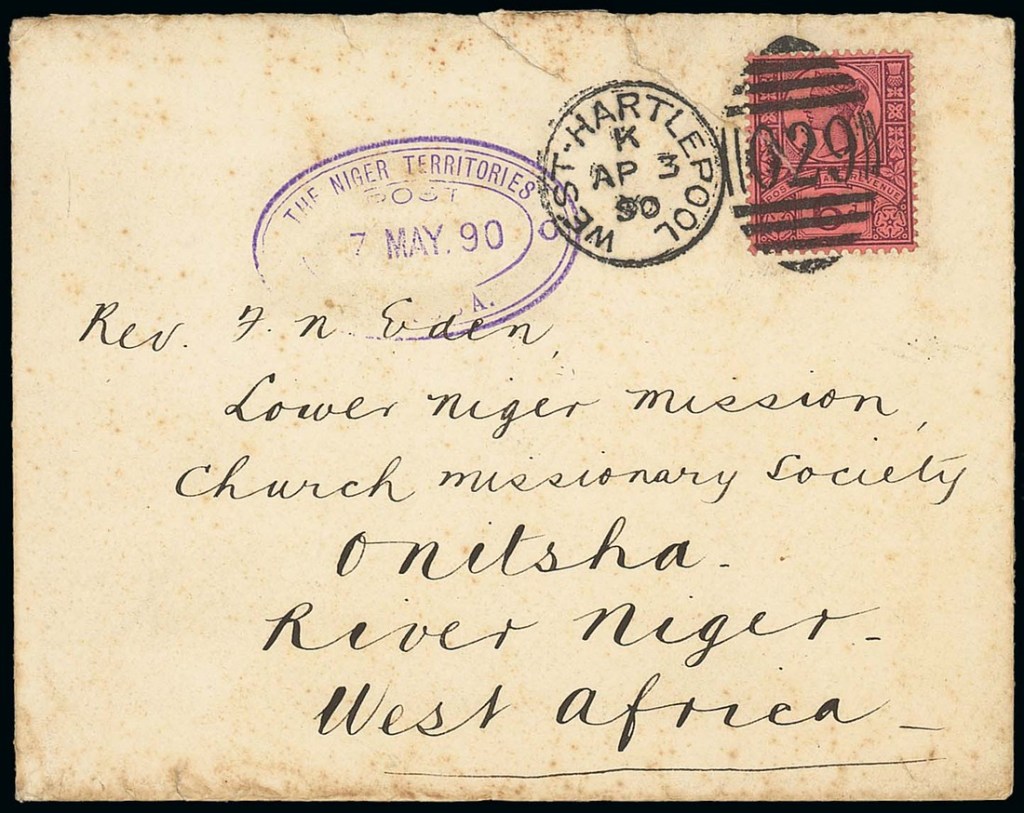 WEST-HARTLEPOOL
K
AP 3
90
029
THE NIGER TERRITORIES
POST
7 MAY. 90
A.
Rev. F. N. Eden,
Lower Niger Mission,
Church Missionary Society
Onitsha.
River Niger.
West Africa